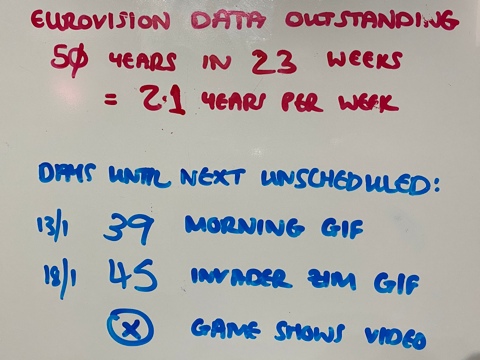 EUROVISION DATA OUTSTANDING
50 YEARS IN 23 WEEKS
= 2.1 YEARS PER WEEK
DAYS UNTIL NEXT UNSCHEDULED:
13/1 39 MORNING GIF
18/1 45 INVADER ZIM GIF
X GAME SHOWS VIDEO